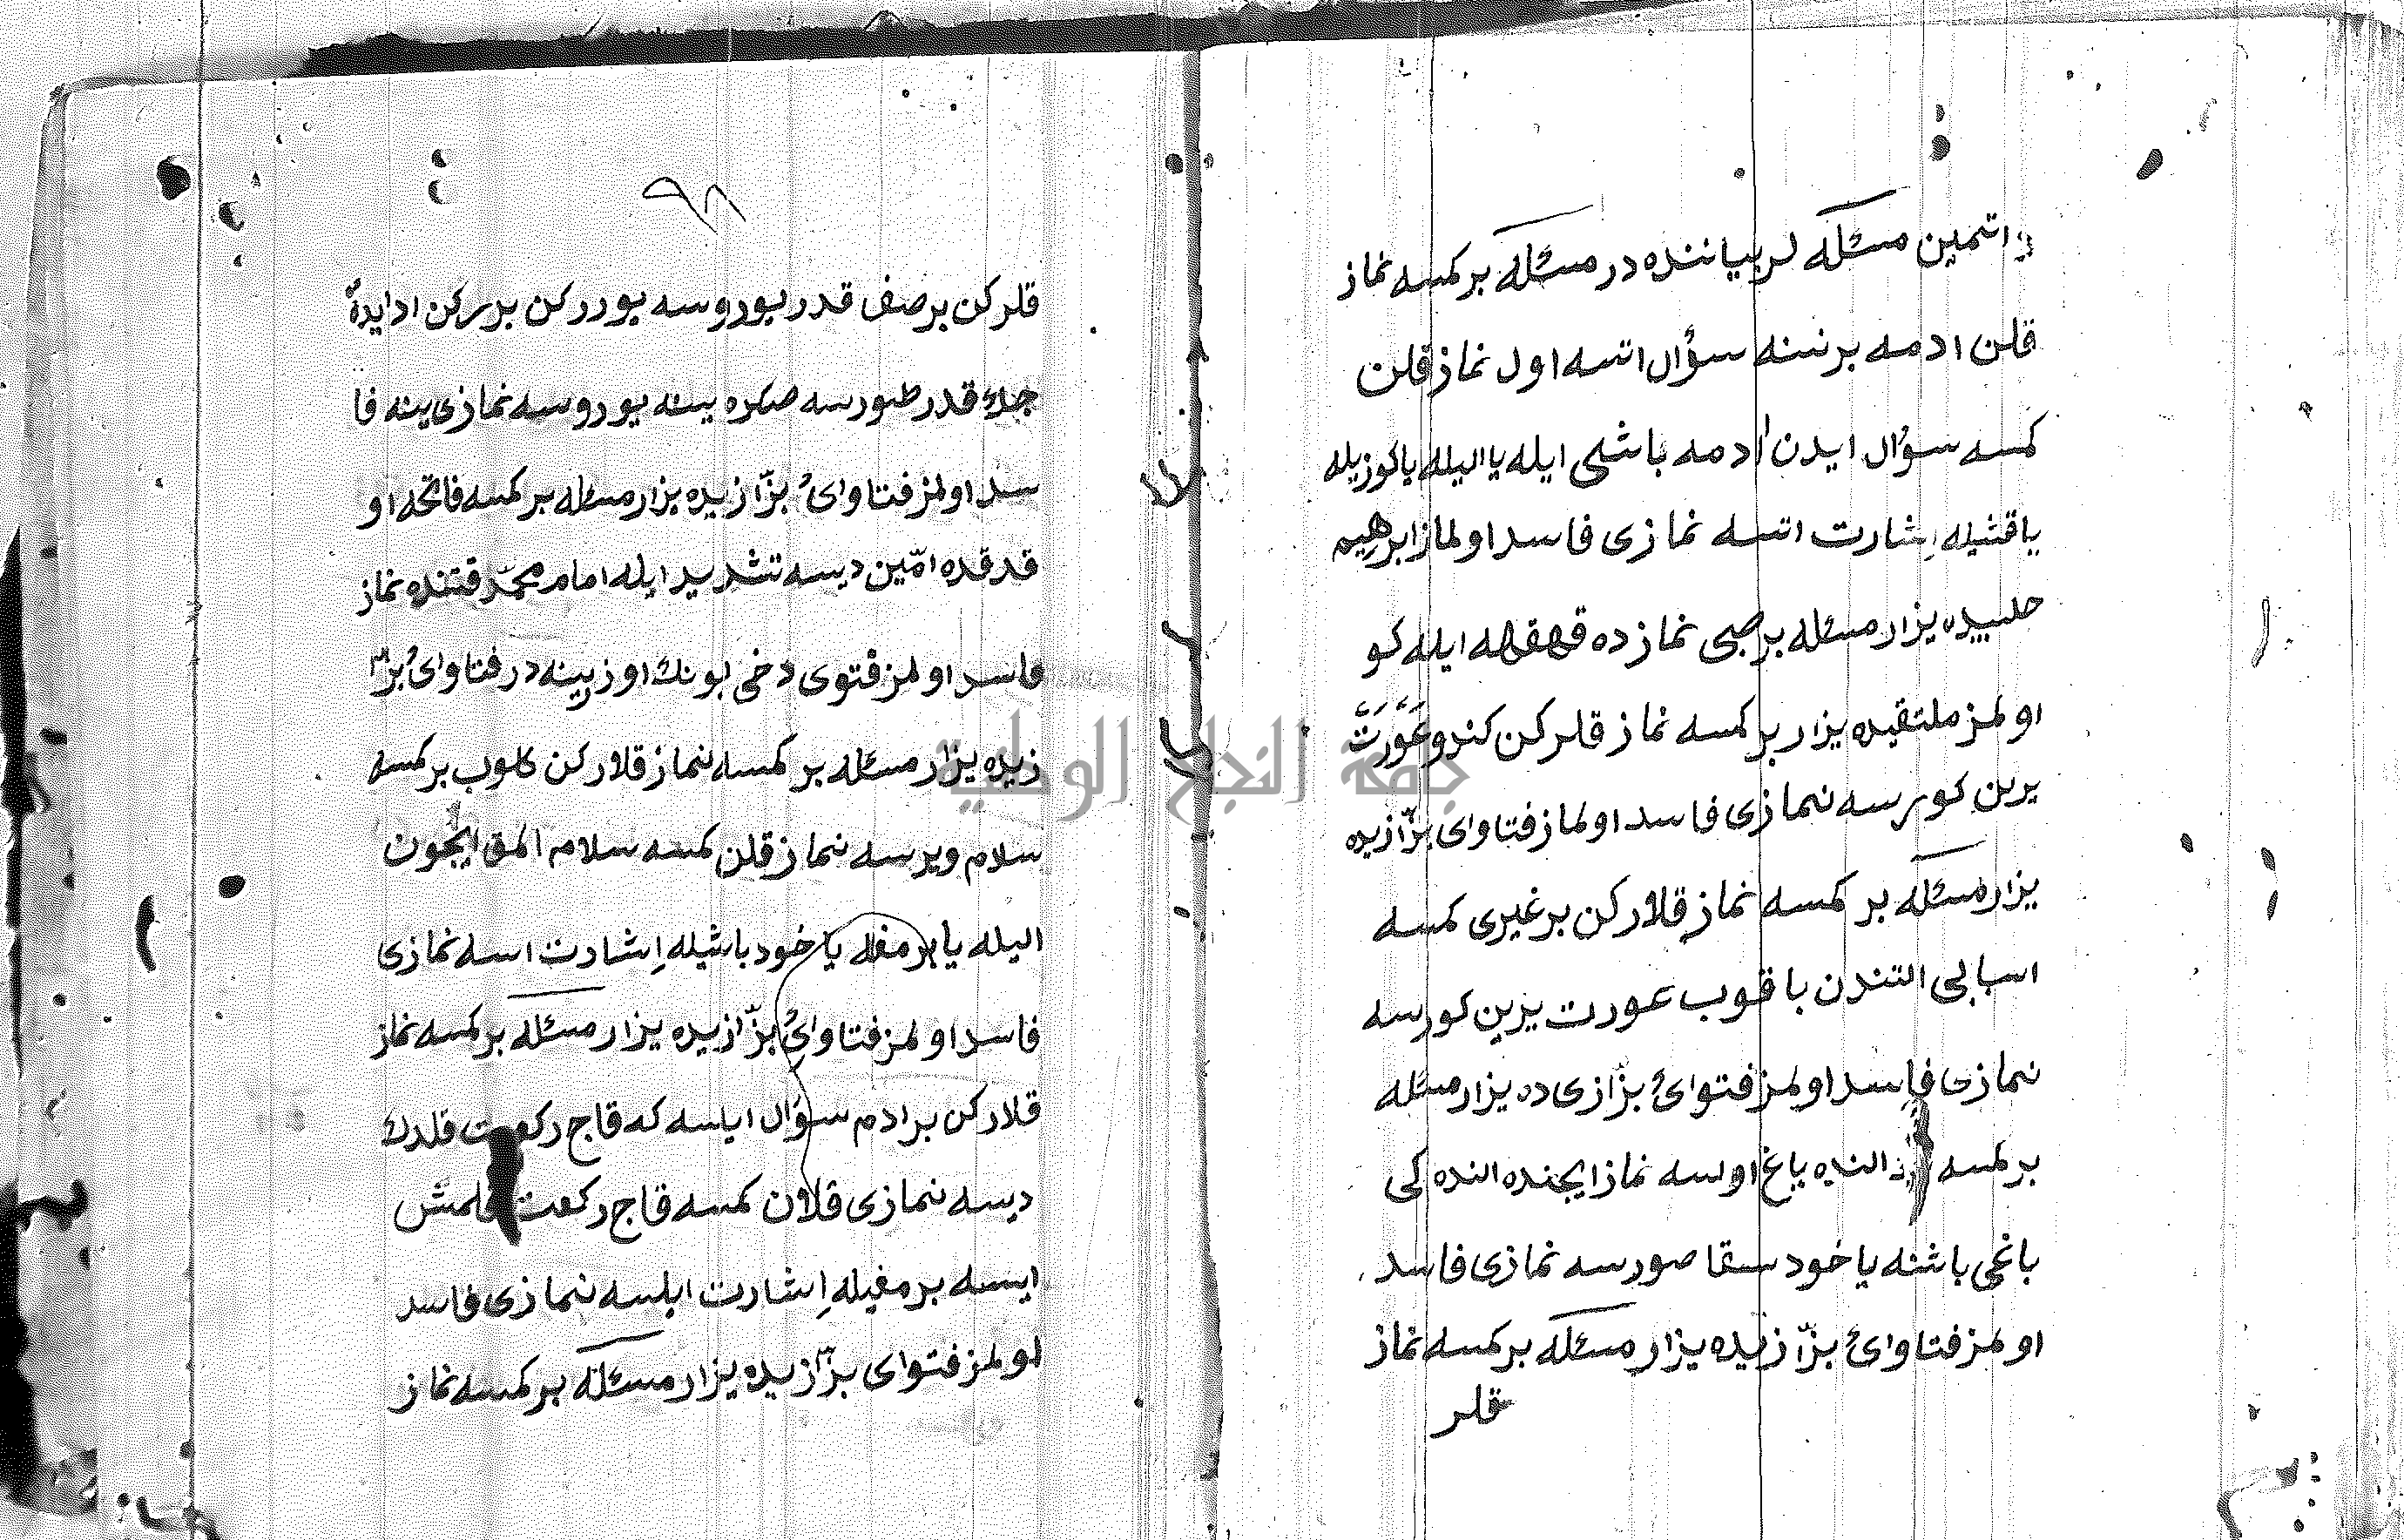 اتمين مسئله لر بياننده در مسئله بر كمسه نماز
قلن ادمه بر نسنه سؤال اتسه اول نماز قلن
كمسه سؤال ايدن ادمه باشى ايله يا اليله يا كوزيله
يا قشيله اِشارت اتسه نمازى فاسد اولماز ابرهيم
حلبيده يزار مسئله بر صبى نمازده قهقهه ايله كو
اولمز ملتقيده يزار بر كمسه نماز قلركن كندو عَوَرَتَ
يرين كورسه نمازى فاسد اولماز فتاواى بزّازيده
يزار مسئله بر كمسه نماز قلاركن بر غيرى كمسه
اسبابى التندن باقوب عورت يرين كورسه
نمازى فاسد اولمز فتوائ بزّازى ده يزار مسئله
بر كمسه النده ياغ اولسه نماز ايجنده النده كى
ياغى باشنه يا خود سقا صورسه نمازى فاسد
اولمز فتاوائ بزّازيده يزار مسئله بر كمسه نماز
قلر
٩٨
قلركن بر صف قدر يوروسه يو ر ركن بر ركن ادايده
جك قدر طورسه صكره ينه يوروسه نمازى ينه فا
سد اولمز فتاوائ بزّازيده يزار مسئله بر كمسه فاتحه او
قدقده امّين ديسه تشديد ايله امام محمّد قتنده نماز
فاسد اولمز فتوى دخى بونك اوزرينه در فتاوائ بزّا
زيده يزار مسئله بر كمسه نماز قلاركن كلوب بر كمسه
سلام ويرسه نماز قلن كمسه سلام المق ايچون
اليله يا برمغله يا خود باشيله اِشارت اسه نمازى
فاسد اولمز فتاوائ بزّازيده يزار مسئله بر كمسه نماز
قلاركن بر ادم سؤال ايلسه كه قاج ركعت قلدك
ديسه نمازى قلان كمسه قاج ركعت قلمش
ايسه برمغيله اِشارت ايلسه نمازى فاسد
اولمز فتواى بزّازيده يزار مسئله بر كمسه نماز
جامعة النجاح الوطنية